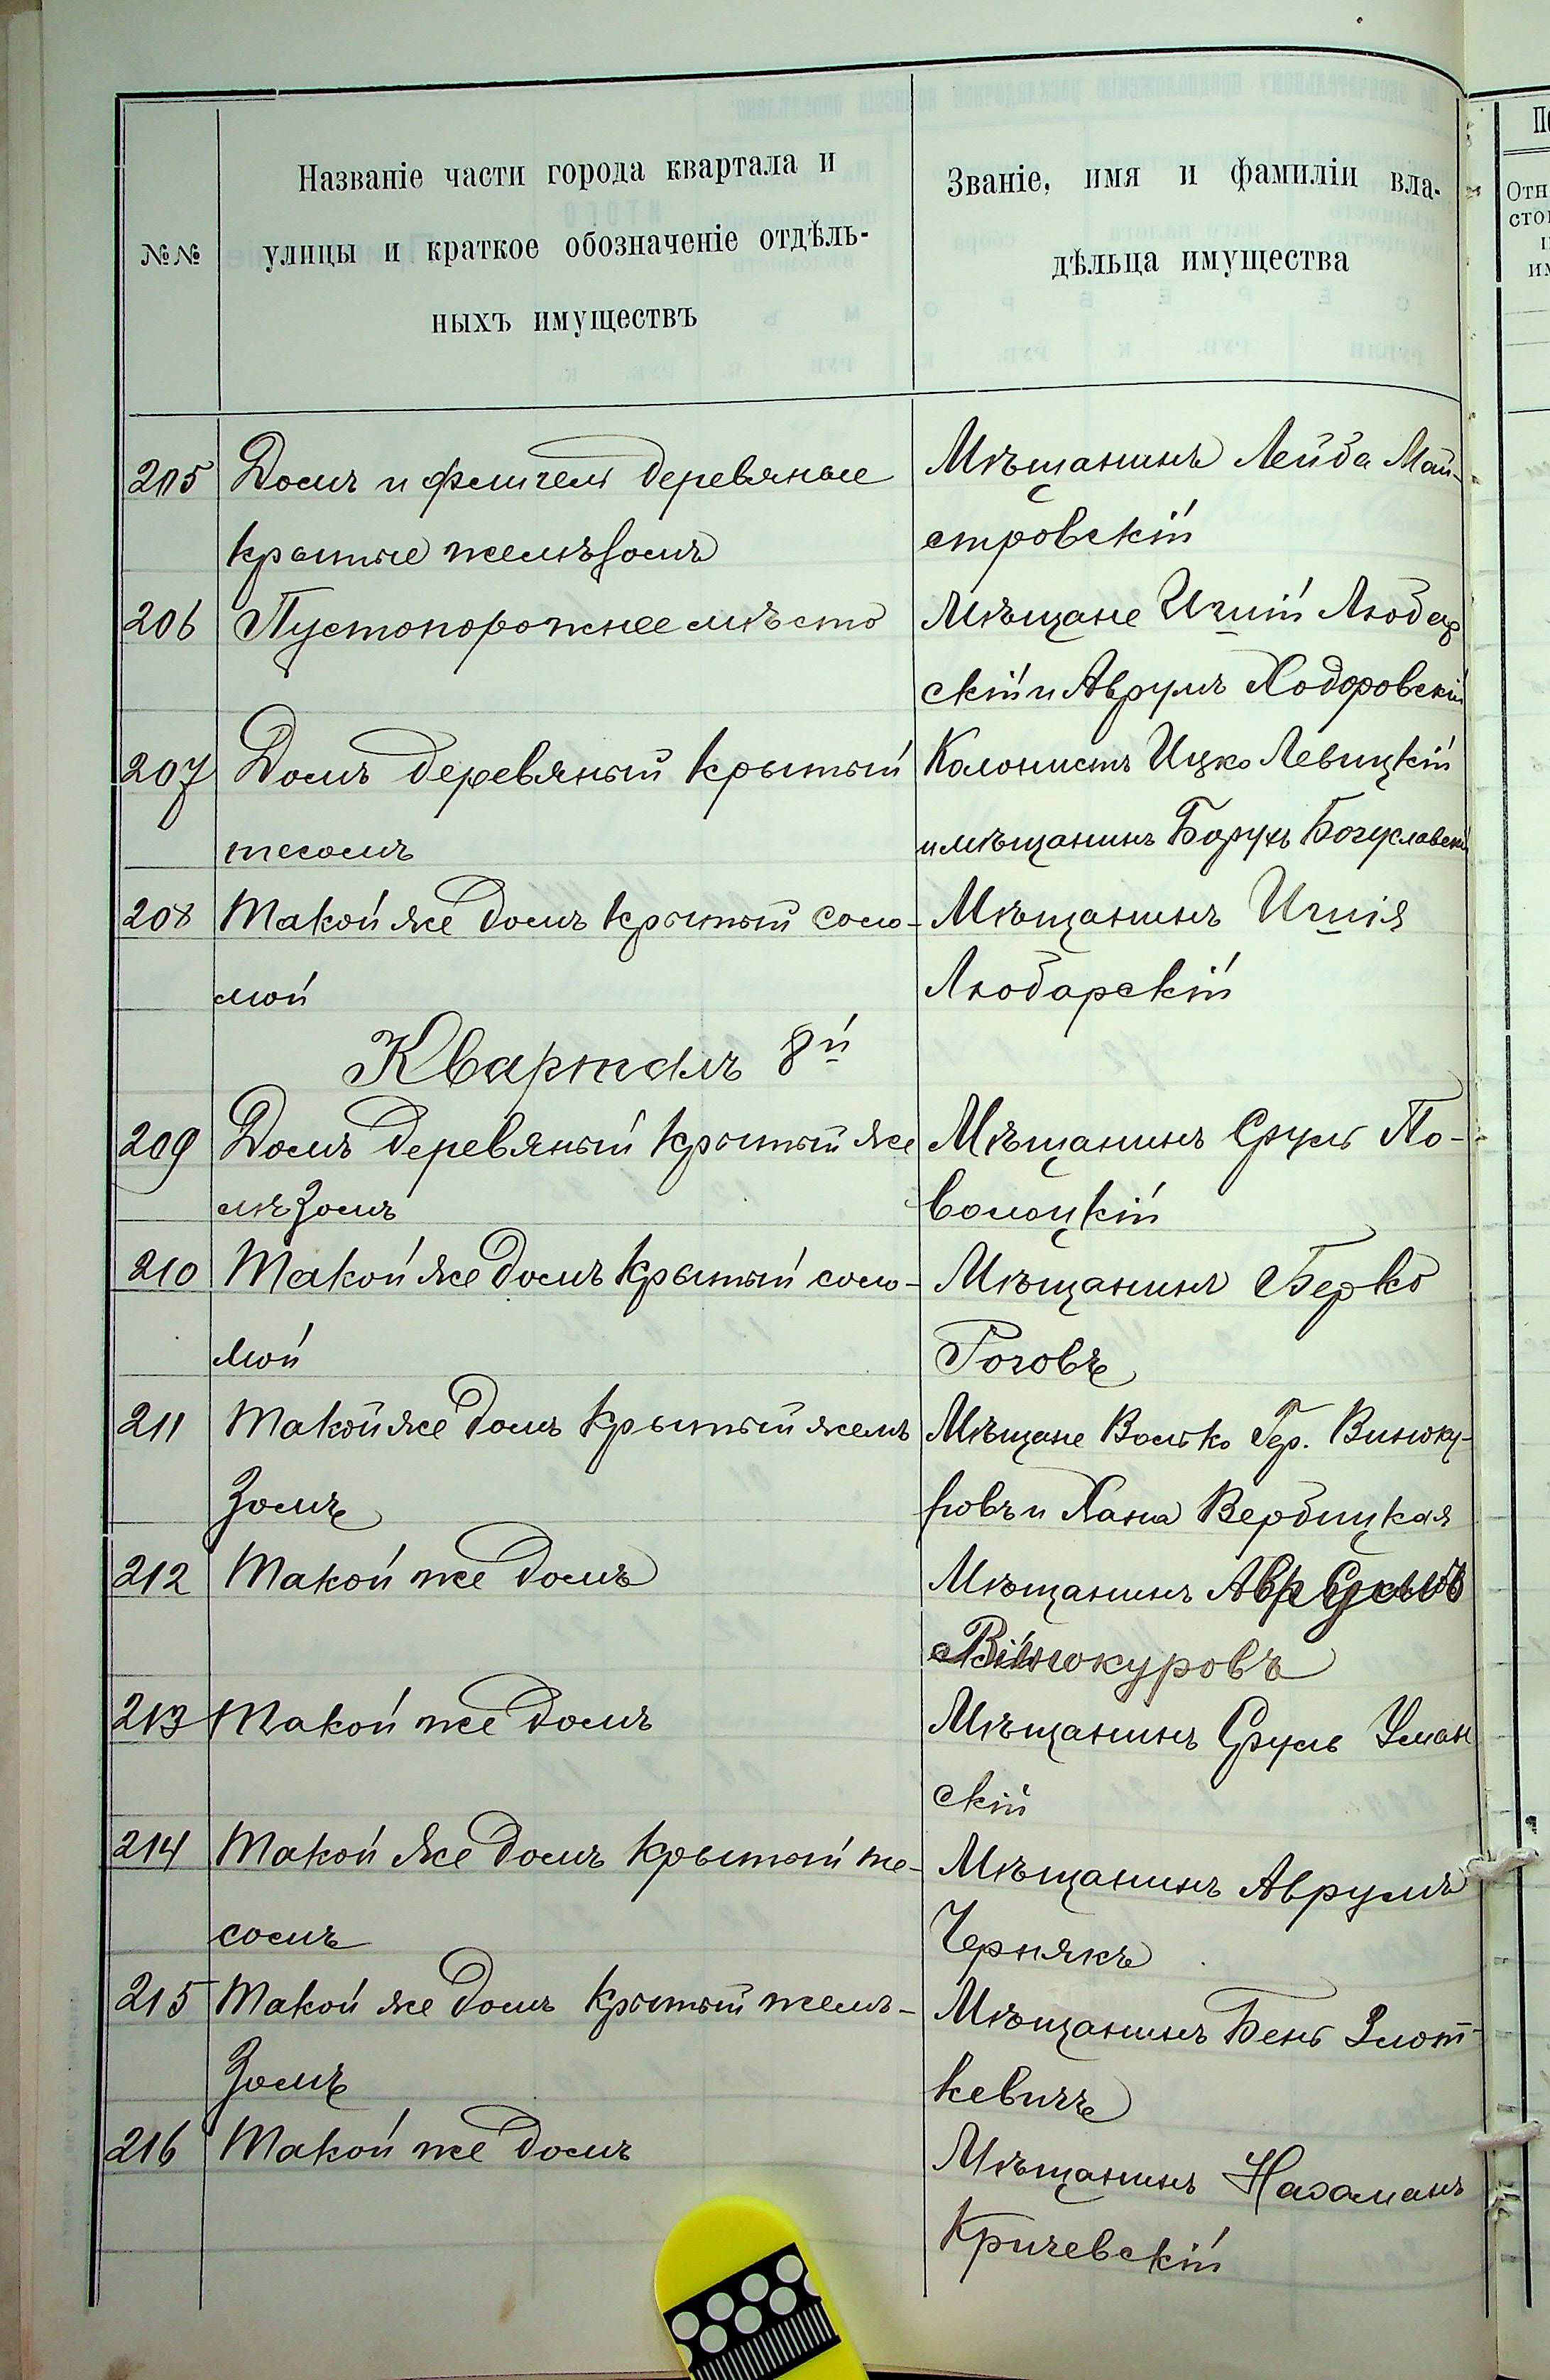 №№
Названіе части города квартала и
улицы и краткое обозначеніе отдѣль-
ныхъ имуществъ
Званіе, имя и фамиліи вла-
дѣльца имущества
205 Домъ и флигель деревяные Мѣщанинъ Лейба Май-
крытые желѣзомъ стровскій
206 Пустопорожнее мѣсто Мѣщане Ицій Любар
скій и Аврумъ Ходоровскій
207 Домъ деревяный крытый Колонистъ Ицко Левицкій
тесомъ и мѣщанинъ Борухъ Богуславскій
208 Такой же домъ крытый соло- Мѣщанинъ
мой Любарскій
Кварталъ 8й
209 Домъ деревяный крытый же Мѣщанинъ Сруль По-
лѣзомъ волоцкій
210 Такой же домъ крытый соло- Мѣщанинъ Берко
мой Роговъ
211 Такой же домъ крытый желѣ Мѣщане Волько Гер. Виноку-
зомъ ровъ и Хана Вербицкая
212 Такой же домъ Мѣщанинъ
Винокуровъ
213 Такой же домъ Мѣщанинъ Сруль Уман
скій
214 Такой же домъ крытый те- Мѣщанинъ Аврумъ
сомъ Чернякъ
215 Такой же домъ крытый желѣ- Мѣщанинъ Бень Злот-
зомъ кевичъ
216 Такой же домъ Мѣщанинъ Нахаманъ
Кричевскій